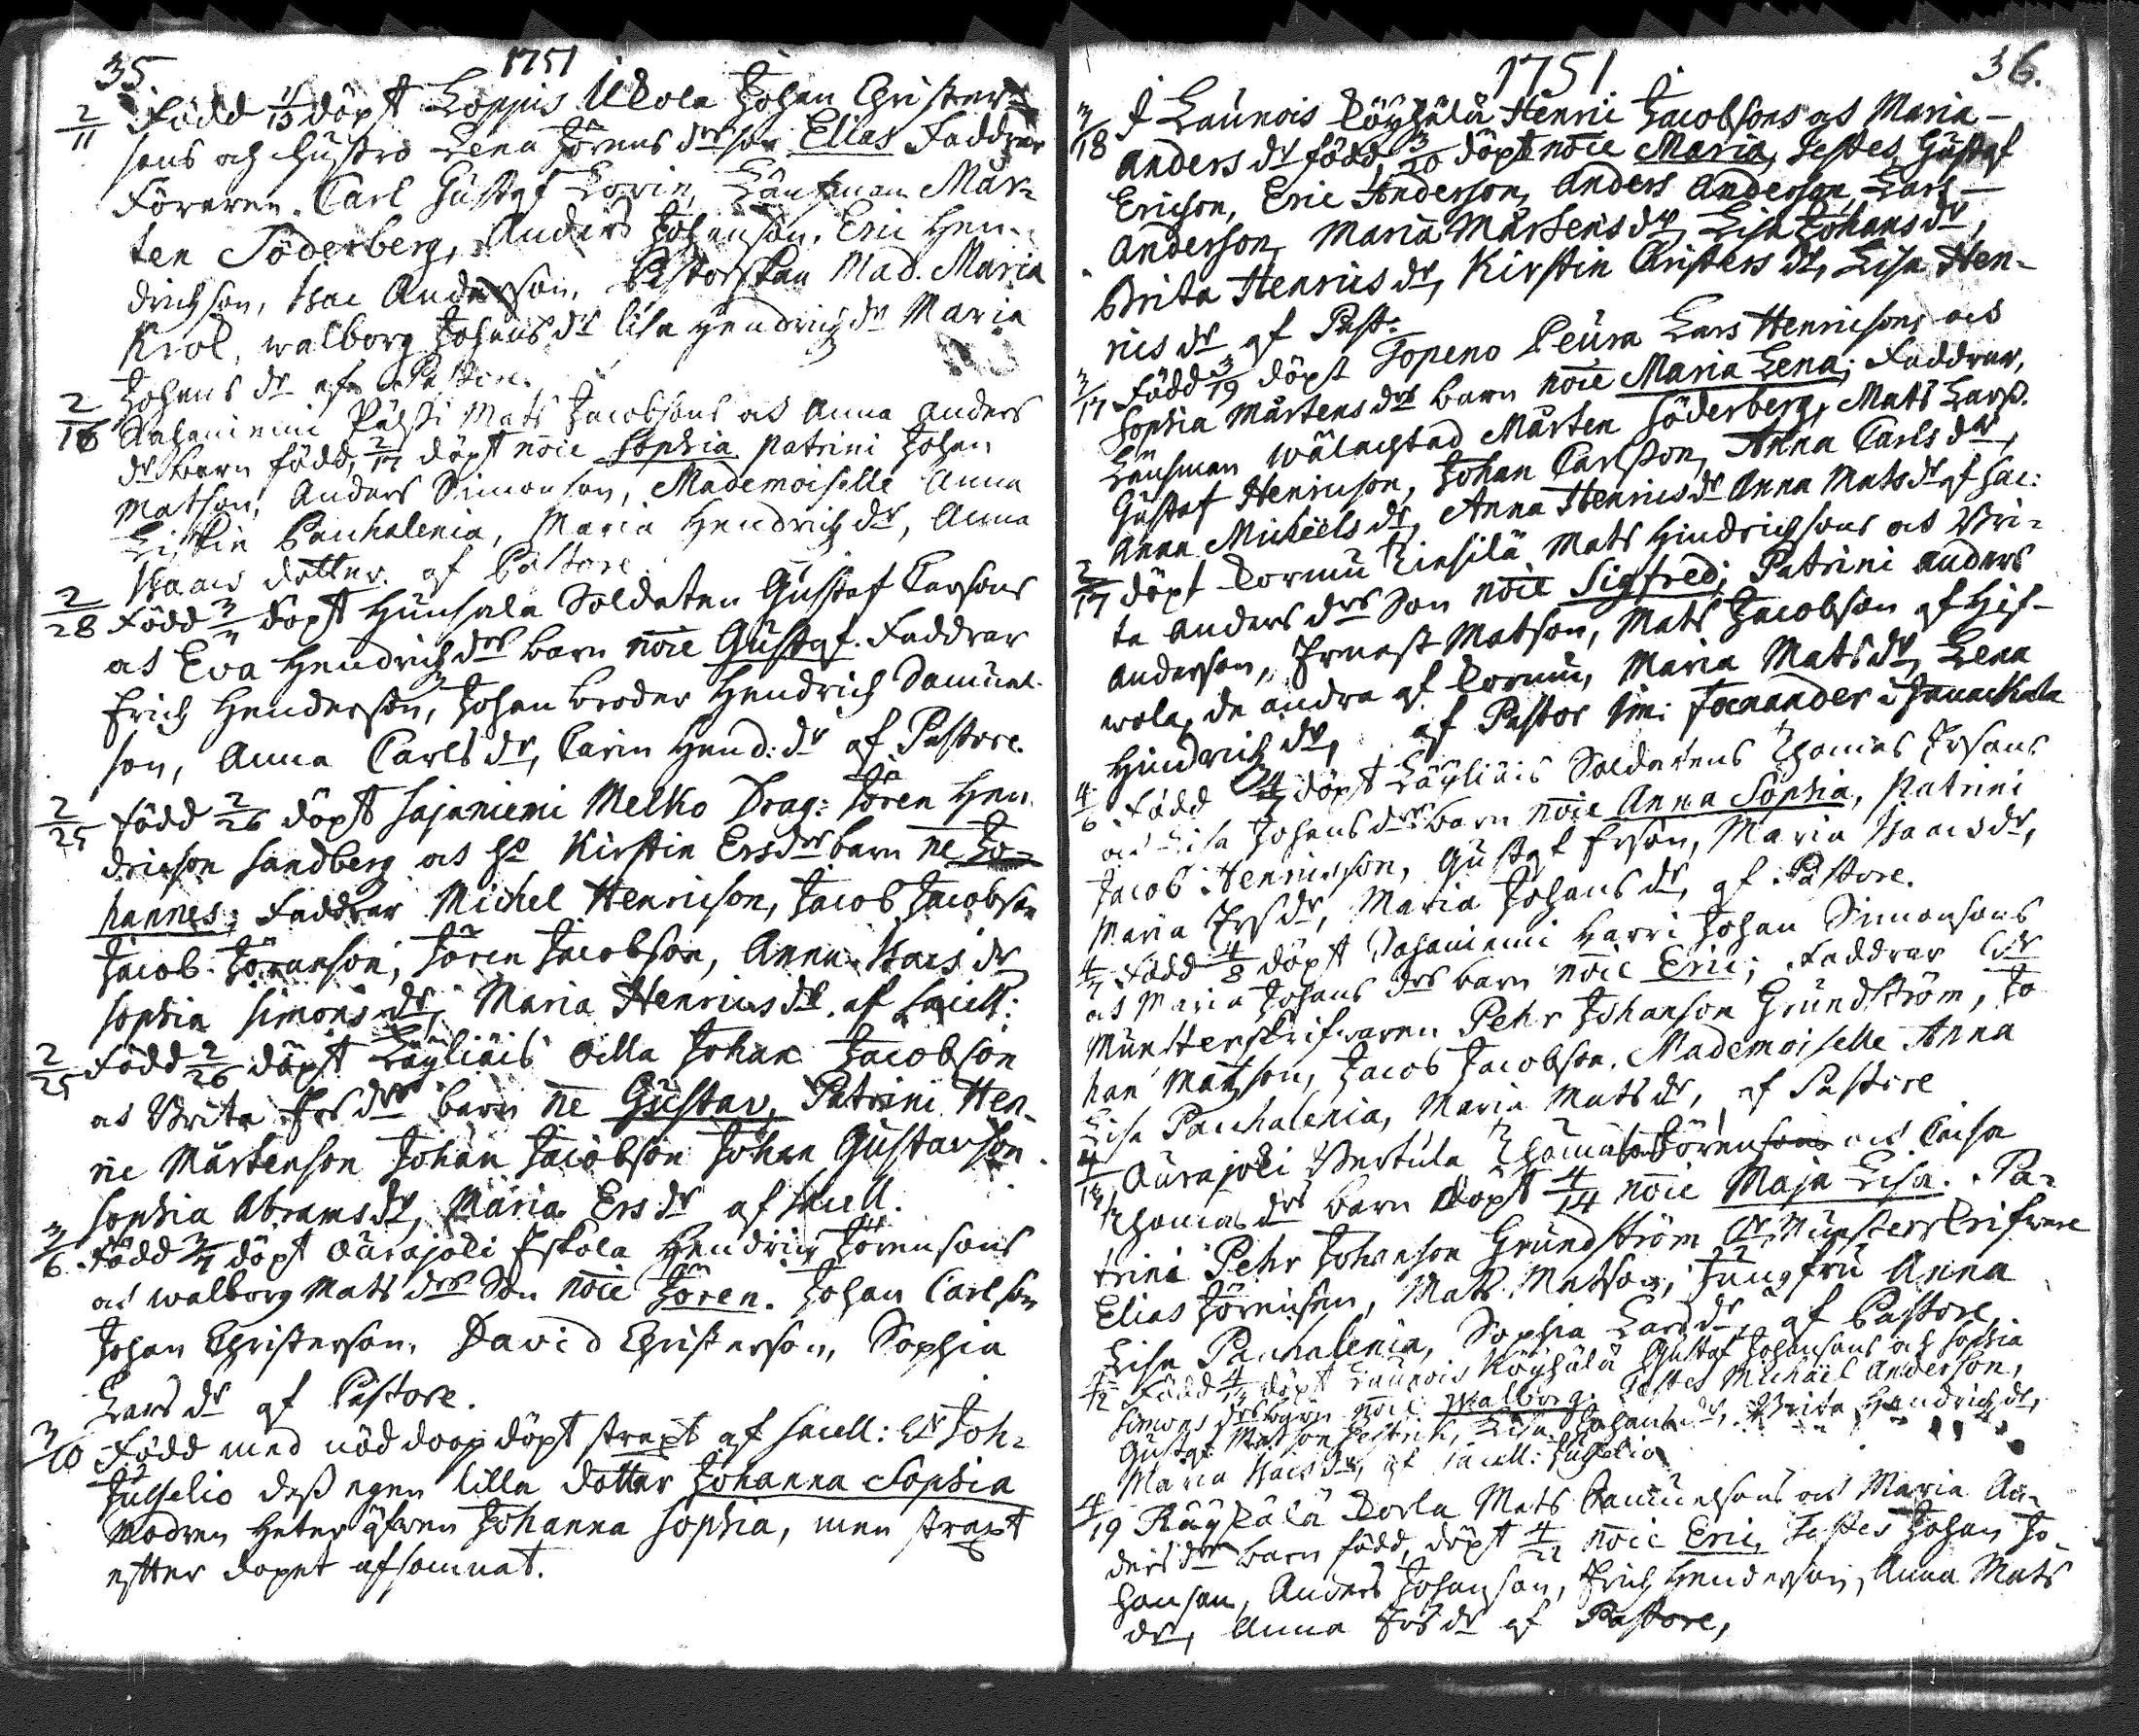 35 1751
2/11 Född 11/13 döpt Loppis Ukola Johan Christer-
sons och hustrus Lena Jörensdrs son Elias Faddrar
Föraren Carl Gustaf Lorin, Länsman Mår-
ten Söderberg, Anders Johanson, Eric Hen-
drichson, Isac Anderson, Pastorskan Mad. Maria
Krol, walborg Johansdr Lisa Hendrichdr Maria
Johans dr af Pastore.
2/16 Sajaniemi Mats Jacobsons as Anna Anders
drs barn född, 2/17 döpt noie Sophia patrini Johan
Matson, Anders Simonson, Mademoiselle Anna
Liskin Pauhalenia, Maria Hendrichdr, Anna
Isaacs dotter af Pastore.
2/28 Född 3/ döpt Hunsala Soldaten Gustaf Larsons
as Eva Hendrichdrs barn noie Gustaf. Faddrar
Erich Henderson, Johan broder Hendrich Samuel-
son, Anna Carlsdr, Carin Hend:dr af Pastore.
2/25 Född 2/26 döpt Sajaniemi Melko Drag: Jören Hen-
dricson Sandberg as ho Kirstin Ersdrs barn ne Jo-
hannes; Faddrar Michel Henricson, Jacob Jacobson
Jacob Göranson, Jören Jacobson, Anna Isacs dr
Sophia Simonsdr, Maria Henricsdr. af Sacell:
2/25 Född 2/26 döpt Läyliäis Olla Johan Jacobson
as Brita Ersdrs barn ne Gustav, Patrini Hen-
ric Mårtenson Johan Jacobson Johan Gustavson
Sophia Abramsdr, Maria Ersdr af Sacell.
3/6 Född 3/7 döpt Aurajoki Eskola Hendric Jörensons
as walborg Mats drs Son noie Jören. Johan Carlson
Johan Christerson, David Christerson, Sophia
Larsdr af Pastore.
3/10 Född med nöddoop döpt straxt af Sacell: Dr Joh:
Juselio dess egen lilla dotter Johanna Sophia
Modren heter äfven Johanna Sophia, men straxt
efter dopet afsomnat.
1751 36.
3/18 I Launois Köyhälä Henric Jacobsons as Maria
Anders dr född, 3/20 döpt noie Maria, Testes Gustaf
Ericson, Eric Anderson, Anders Anderson, Lars
Anderson, Maria Mårtensdr, Lisa Johansdr,
Brita Henricsdr, Kirstin Christersdr, Lisa Hen-
rics dr af Past:
3/17 Född 3/19 döpt Topeno Peura Lars Henricsons as
Sophia Mårtensdrs barn noie Maria Lena; Faddrar,
Länsman wälachtad Mårten Söderberg, Mats Larss.
Gustaf Henricson, Johan Carlsson, Anna Carlsdr,
Anna Michelsdr, Anna Henricsdr Anna Matsdr af Sac:
2/17 döpt Kormu Mats Hindrichsons as Bri-
ta Andersdrs Son noie Sigfred; Patrini Anders
Anderson, Ernest Matson, Mats Jacobson af His-
wola, de andra af Kormu, Maria Matsdr, Lena
Hindrichdr, af Pastor Sim: Forsander i Janackala
4/6 Född 4/7 döpt Läyliäis Soldatens Thomas Ersons
as Lisa Johansdrs barn noie Anna Sophia, Patrini
Jacob Henricsson, Gustaf Erson, Maria Isacsdr,
Maria Ersdr, Maria Johansdr, af Pastore.
4/7 Född 4/8 döpt Sajaniemi Harri Johan Simonsons
as Maria Johans drs barn noie Eric; Faddrar Dr
Münsterskrifwaren Pehr Johanson Grundström, Jo
han Matson, Jacob Jacobson, Mademoiselle Anna
Lisa Pauhalenia, Maria Matsdr, af Pastore
4/13 Aurajoki Bertula Thomas Jörensons as Caisa
Thomasdrs barn döpt 4/14 noie Maja Lisa. Pa-
trini Pehr Johanson Grundström Dr Münsterskrifware
Elias Jörenson, Mats Matson, Jungfru Anna
Lisa Pauhalenia, Sophia Larsdr, af Pastore.
4/12 Född 4/14 döpt Launois Köyhälä Gustaf Johansons och Sophia
Simonsdrs barn noie Walborg. Testes Michael Anderson,
Gustaf Matson, Lisa Johansdr, Brita Hendrichdr,
Maria Isacsdr, af Sacell: Juselio
4/19 Räyskälä Korla Mats Samuelsons as Maria An-
ders drs barn född, döpt 4/21 noie Eric, Testes Johan Jo
hanson, Anders Johanson, Erich Henderson, Anna Mats
dr, Anna Ersdr af Pastore,